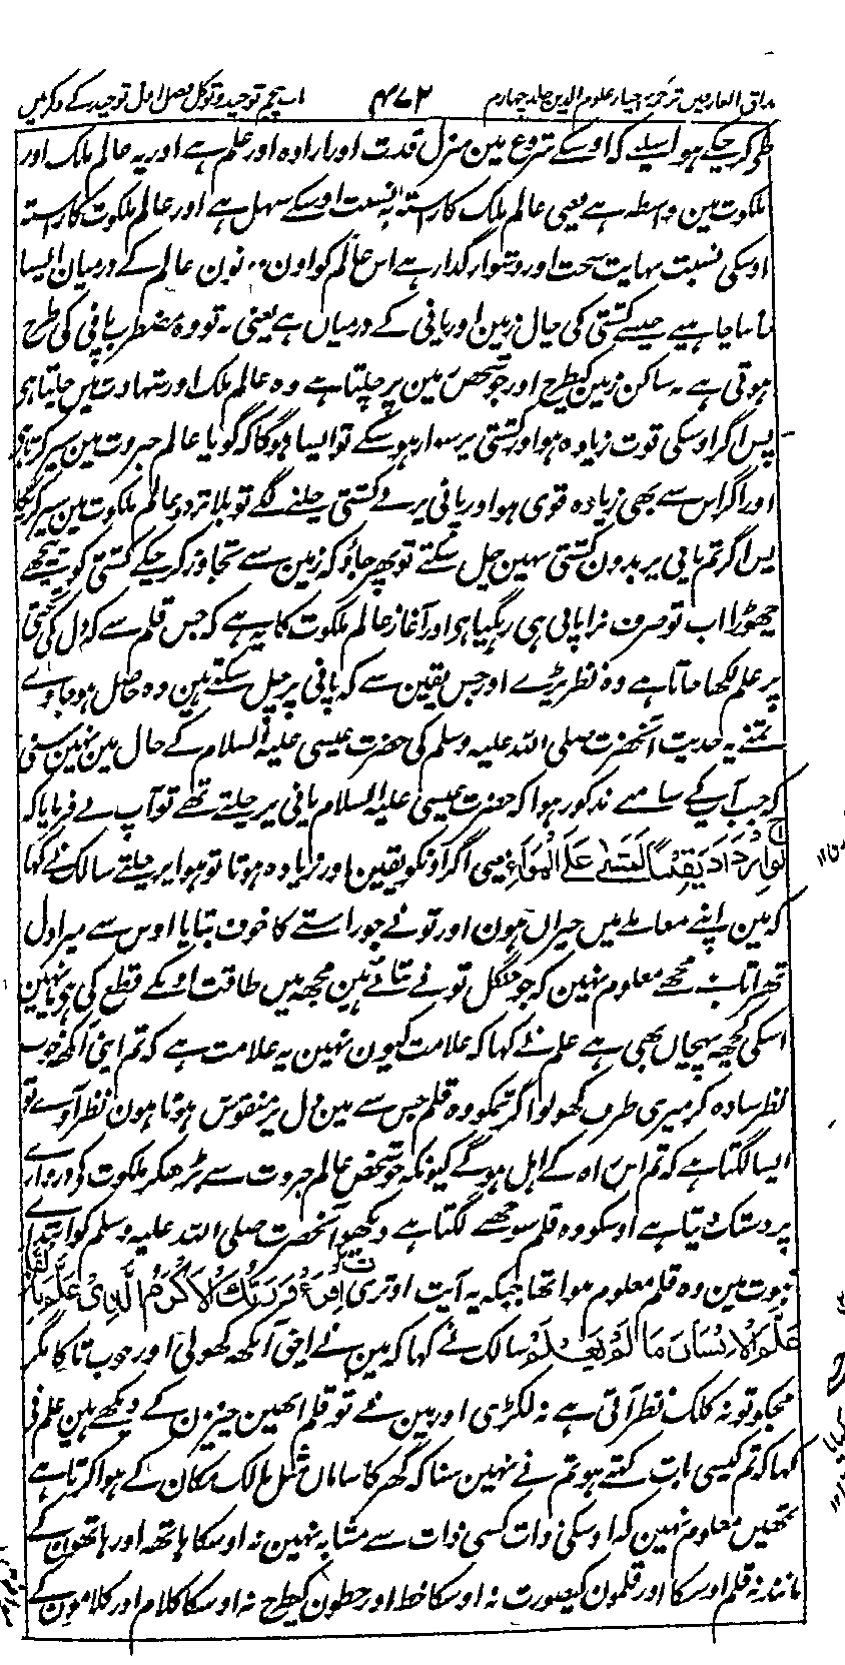 مذاق العارفین ترجمہ احیاء علوم الدین جلد چہارم ۴۷۲ باب پنجم توحید و توکل فصل اول توحید کے ذکر میں
طی کر چکے ہو اسلیے کہ اوسکے شروع مین منزل قدرت اور ارادہ اور علم ہے اور یہ عالم ملک اور
ملکوت مین واسطہ ہے یعنی عالم ملک کا راستہ بہ نسبت اوسکے سہل ہے اور عالم ملکوت کا راستہ
اوسکی نسبت نہایت سخت اور دشوار گذار ہے اس عالم کو اون دونون عالم کے درمیان ایسا
جاننا چاہیے جیسے کشتی کی چال زمین اور پانی کے درمیان ہے یعنی نہ تو وہ مضطرب پانی کی طرح
ہوتی ہے نہ ساکن زمین کیطرح اور جو شخص زمین پر چلتا ہے وہ عالم ملک اور شہادت میں چلتا ہو
پس اگر اوسکی قوت زیادہ ہو اور کشتی پر سوار ہو سکے تو ایسا ہوگا کہ گویا عالم جبروت مین سیر کرتا ہو
اور اگر اس سے بھی زیادہ قوی ہو اور پانی پر بے کشتی چلنے لگے تو بلا تردد عالم ملکوت مین سیر کریگا
پس اگر تم پانی پر بدون کشتی نہین چل سکتے تو پھر جاؤ کہ زمین سے تجاوز کر چکے کشتی کو پیچھے
چھوڑا اب تو صرف نرا پانی ہی رہگیا ہو اور آغاز عالم ملکوت کا یہ ہے کہ جس قلم سے کہ دل کی تختی
پر علم لکھا جاتا ہے وہ نظر پڑے اور جس یقین سے کہ پانی پر چل سکتے ہین وہ حاصل ہو جاوے
تمنے یہ حدیث آنحضرت صلی اللہ علیہ وسلم کی حضرت عیسی علیہ السلام کے حال مین نہین سنی
کہ جب آپ کے سامنے مذکور ہوا کہ حضرت عیسیٰ علیہ السلام پانی پر چلتے تھے تو آپ نے فرمایا کہ
لَوِازْدَادَ يَقِيْنًا لَمَشٰى عَلَى الْهَوَاءِ یعنی اگر اونکو یقین اور زیادہ ہوتا تو ہوا پر چلتے سالک نے کہا
کہ مین اپنے معاملے میں حیران ہون اور تو نے جو راستے کا خوف بتایا اوس سے میرا دل
تھراتا ہے مجھے معلوم نہین کہ جو جنگل تو نے بتائے ہین مجھہ میں طاقت اونکے قطع کی ہو یا نہین
اسکی کچھہ پہچان بھی ہے علم نے کہا کہ علامت کیون نہین یہ علامت ہے کہ تم اپنی آنکھ خوب
نظر سادہ کر میری طرف کھولو اگر تمکو وہ قلم جس سے مین دل پر منقوش ہوتا ہون نظر آوے تو
ایسا لگتا ہے کہ تم اس راہ کے اہل ہوگے کیونکہ جو شخص عالم جبروت سے بڑھکر ملکوت کو دروازے
پر دستک دیتا ہے اوسکو وہ قلم سوجھنے لگتا ہے دیکھو آنحضرت صلی اللہ علیہ وسلم کو ابتداے
نبوت مین وہ قلم معلوم ہوا تھا جبکہ یہ آیت اوتری اِقْرَءْ وَرَبُّكَ الْاَكْرَمُ الَّذِیْ عَلَّمَ بِالْقَلَمِ
عَلَّمَ الْاِنْسَانَ مَا لَمْ يَعْلَمْ سالک نے کہا کہ مین نے اپنی آنکھہ کھولی اور خوب تاکا مگر
مجکو تو نہ کلک نظر آتی ہے نہ لکڑی اور مین نے تو قلم انھین چیزون کے دیکھے ہین علم نے
کہا کہ تم کیسی بات کہتے ہو تم نے نہین سنا کہ گھر کا سامان مثل مالک مکان کے ہوا کرتا ہے
تمھیں معلوم نہین کہ اوسکی ذات کسی ذات سے مشابہ نہین نہ اوسکا ہاتھہ اور ہاتھون کے
مانند نہ قلم اوسکا اور قلمون کیصورت نہ اوسکا خط اور خطون کیطرح نہ اوسکا کلام اور کلامون کے